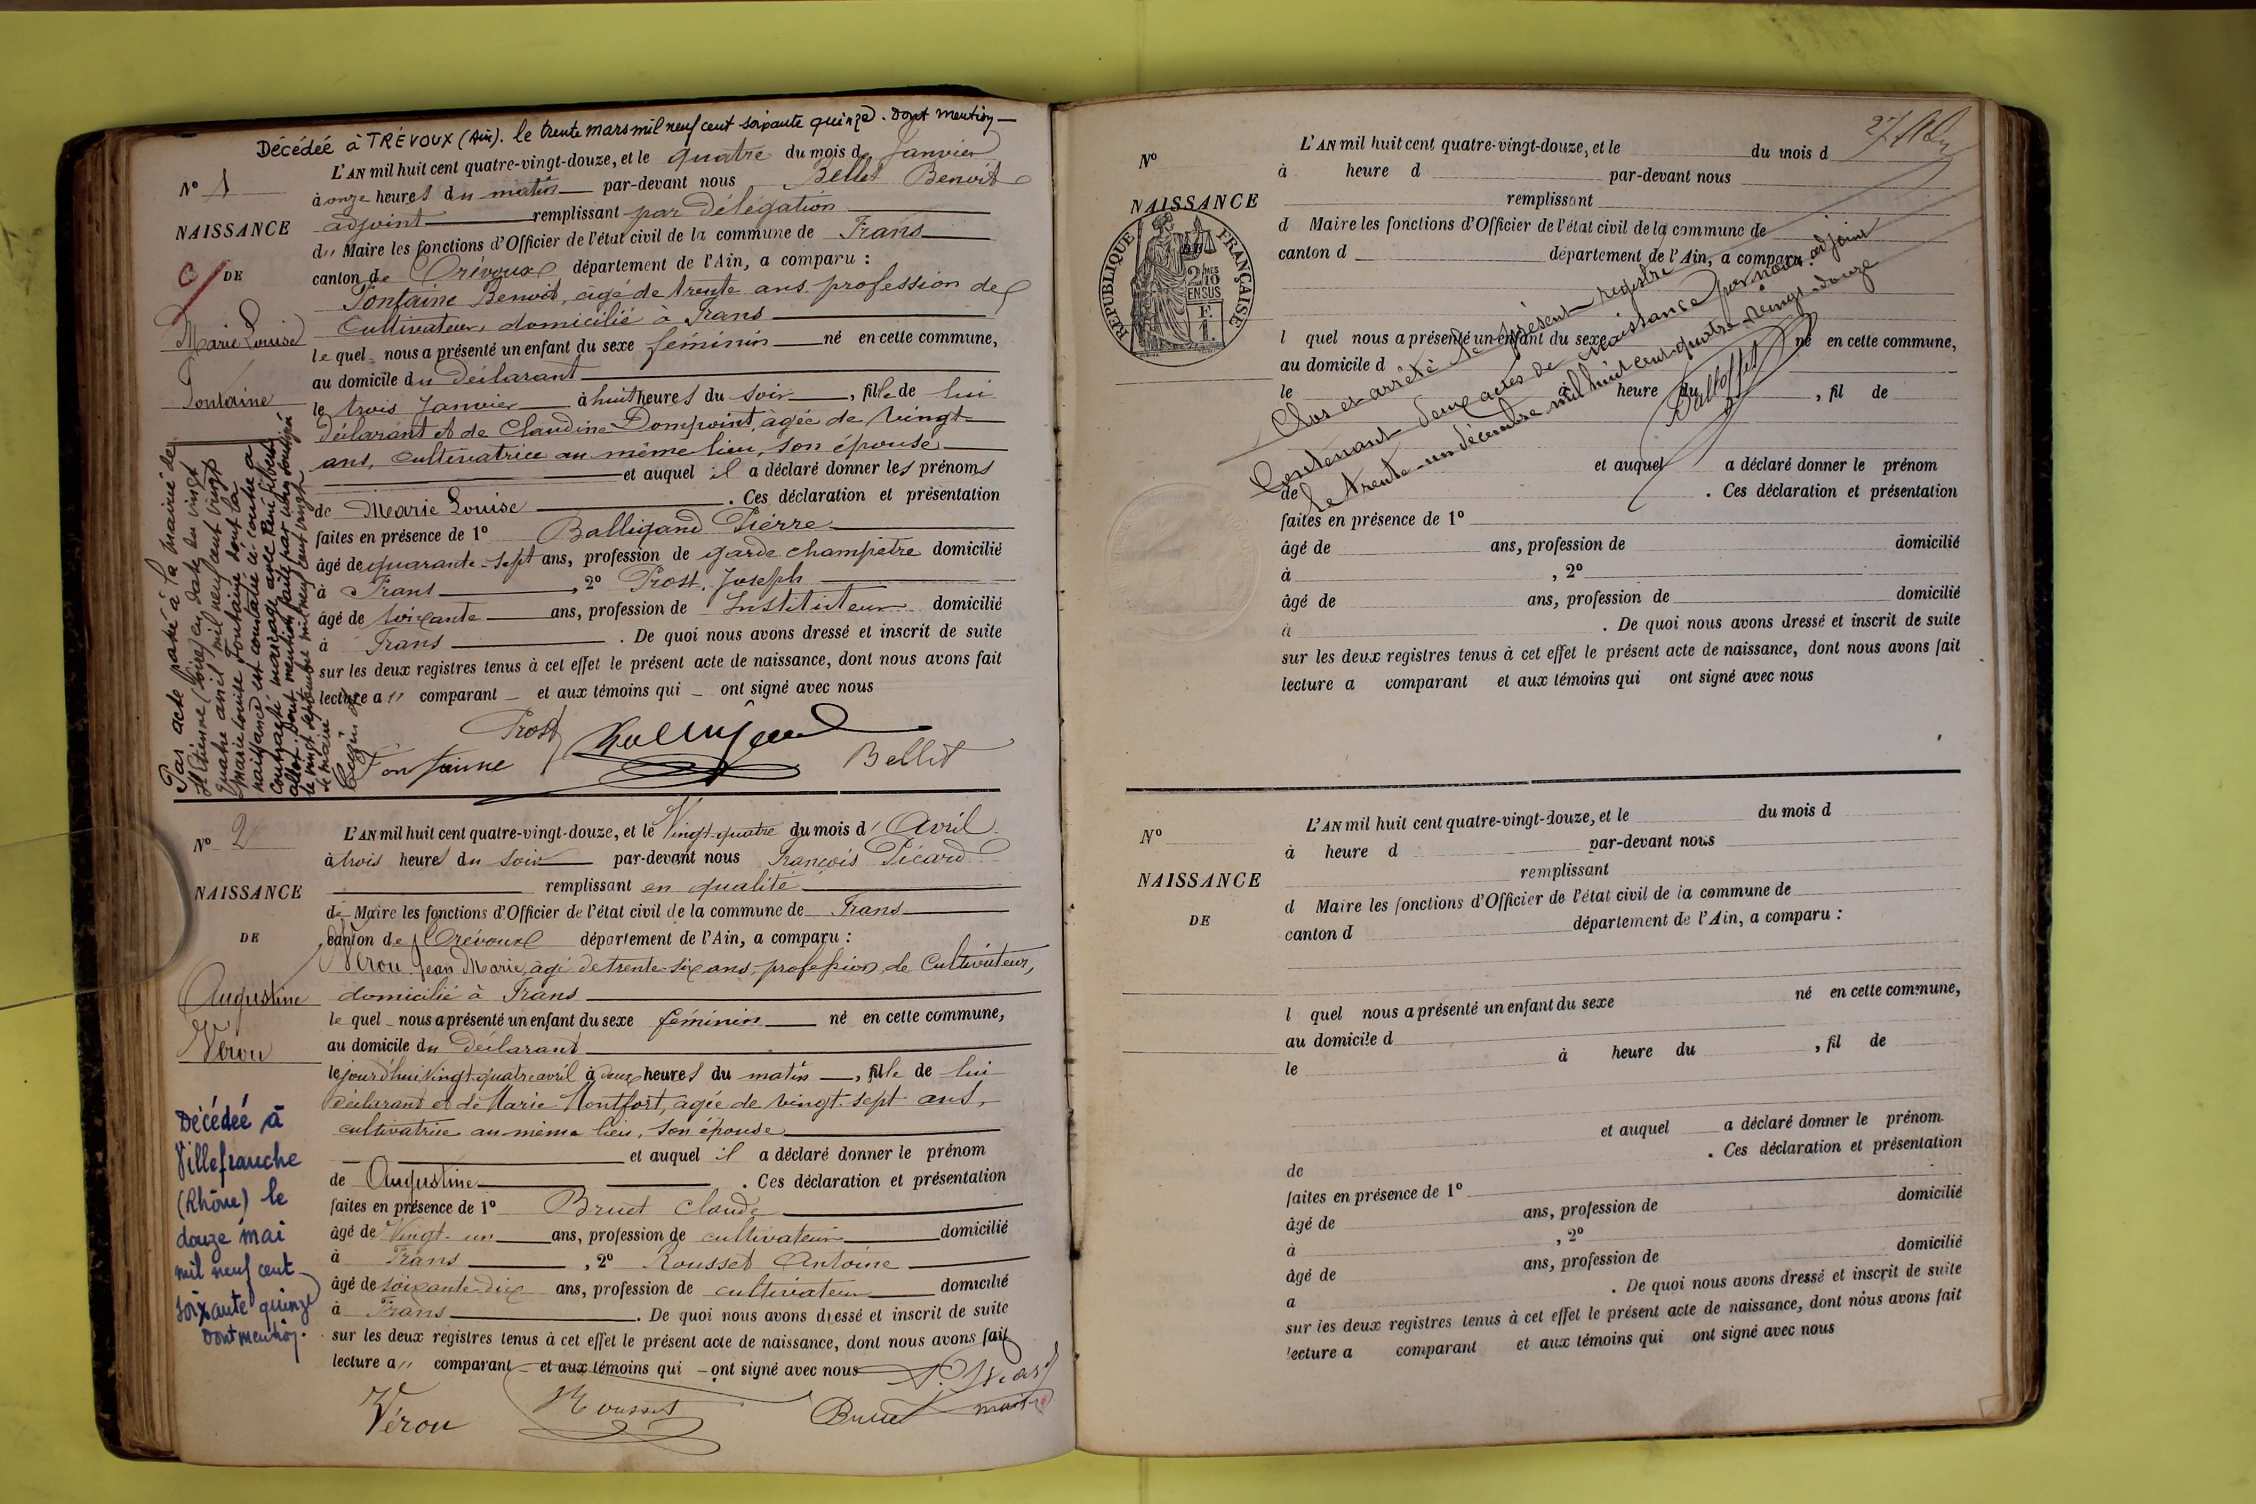 Décédée à TRÉVOUX (Ain). le trente mars mil neuf cent soixante quinze. Dont mention
L'AN mil huit cent quatre-vingt-douze, et le quatre du mois de Janvier
N° 1
à onze heures du matin par-devant nous Bellet Benoit
adjoint remplissant par délégation
NAISSANCE
du Maire les fonctions d'Officier de l'état civil de la commune de Frans
DE
canton de Trévoux département de l'Ain, a comparu :
Fontaine Benoit, âgé de trente ans profession de
Cultivateur, domicilié à Frans
Marie Louise
Fontaine
le quel nous a présenté un enfant du sexe féminin né en cette commune,
au domicile du déclarant
le trois Janvier à huit heures du soir, fille de lui
déclarant et de Claudine Dompoint, âgée de vingt
ans, cultivatrice au même lieu, son épouse
et auquel il a déclaré donner les prénoms
de Marie Louise. Ces déclaration et présentation
faites en présence de 1° Balligand Pierre
âgé de quarante-sept ans, profession de garde champêtre domicilié
à Frans, 2° Prost Joseph
âgé de soixante ans, profession de Instituteur domicilié
à Frans. De quoi nous avons dressé et inscrit de suite
sur les deux registres tenus à cet effet le présent acte de naissance, dont nous avons fait
lecture au comparant et aux témoins qui ont signé avec nous
Par acte passé à la mairie de
St Etienne (Loire) en date du vingt
quatre avril mil neuf cent vingt
Marie Louise Fontaine dont la
naissance est constatée ci-contre a
contracté mariage avec René
dont mention faite par nous soussigné
le vingt septembre mil neuf cent vingt
le maire
Prost
Fontaine
Bellet
N° 2
L'AN mil huit cent quatre-vingt-douze, et le Vingt-quatre du mois d'Avril
à trois heures du soir par-devant nous François Picard
remplissant en qualité
NAISSANCE
de Maire les fonctions d'Officier de l'état civil de la commune de Frans
DE
canton de Trévoux département de l'Ain, a comparu :
Vérou Jean Marie, âgé de trente-six ans, profession de Cultivateur,
Augustine
Vérou
domicilié à Frans
le quel nous a présenté un enfant du sexe féminin né en cette commune,
au domicile du déclarant
le jourd'hui vingt-quatre avril à deux heures du matin, fille de lui
déclarant et de Marie Montfort, âgée de vingt-sept ans,
cultivatrice au même lieu, son épouse
et auquel il a déclaré donner le prénom
de Augustine. Ces déclaration et présentation
faites en présence de 1° Bruet Claude
âgé de Vingt-un ans, profession de cultivateur domicilié
à Frans, 2° Rousset Antoine
âgé de soixante-dix ans, profession de cultivateur domicilié
à Frans. De quoi nous avons dressé et inscrit de suite
sur les deux registres tenus à cet effet le présent acte de naissance, dont nous avons fait
lecture au comparant et aux témoins qui ont signé avec nous
Décédée à
Villefranche
(Rhône) le
douze mai
mil neuf cent
soixante quinze
Dont mention.
Vérou
Rousset
Bruet
Picard
maire
L'AN mil huit cent quatre-vingt-douze, et le du mois d
N°
à heure d par-devant nous
remplissant
NAISSANCE
d Maire les fonctions d'Officier de l'état civil de la commune de
canton d département de l'Ain, a comparu :
RÉPUBLIQUE FRANÇAISE
2 10mes
EN SUS
l quel nous a présenté un enfant du sexe né en cette commune,
au domicile d
le à heure du, fil de
et auquel a déclaré donner le prénom
de. Ces déclaration et présentation
faites en présence de 1°
âgé de ans, profession de domicilié
à, 2°
âgé de ans, profession de domicilié
à. De quoi nous avons dressé et inscrit de suite
sur les deux registres tenus à cet effet le présent acte de naissance, dont nous avons fait
lecture a comparant et aux témoins qui ont signé avec nous
Clos et arrêté le présent registre
Contenant deux actes de naissance par nous adjoint
le trente-un décembre mil huit cent quatre-vingt-douze
N°
L'AN mil huit cent quatre-vingt-douze, et le du mois d
à heure d par-devant nous
remplissant
NAISSANCE
d Maire les fonctions d'Officier de l'état civil de la commune de
DE
canton d département de l'Ain, a comparu :
l quel nous a présenté un enfant du sexe né en cette commune,
au domicile d
le à heure du, fil de
et auquel a déclaré donner le prénom
de. Ces déclaration et présentation
faites en présence de 1°
âgé de ans, profession de domicilié
à, 2°
âgé de ans, profession de domicilié
a. De quoi nous avons dressé et inscrit de suite
sur les deux registres tenus à cet effet le présent acte de naissance, dont nous avons fait
lecture a comparant et aux témoins qui ont signé avec nous